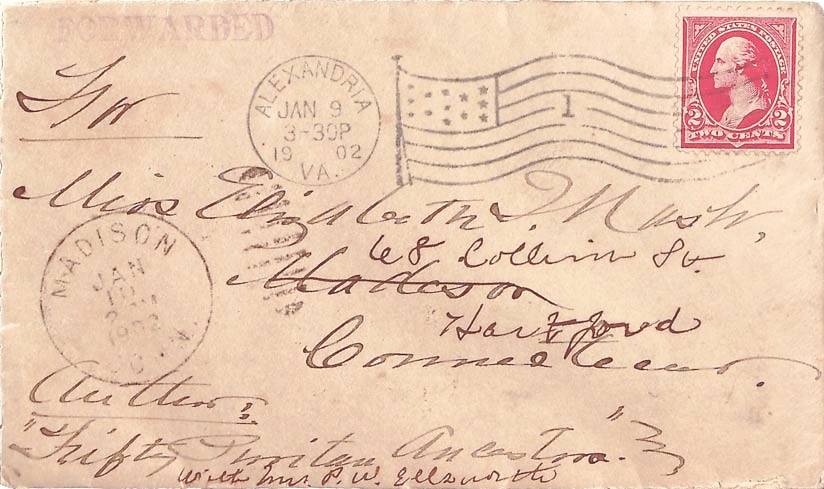 FORWARDED
ALEXANDRIA
JAN 9
3-30P
19 02
VA.
1
UNITED STATES POSTAGE
2 2
TWO CENTS
Miss Elizabeth T. Nash,
68 Collins St.
Madison
Hartford
Connecticut.
MADISON
JAN
1902
CONN.
Author:
"Fifty Puritan Ancestors."
with Mrs. P. W. Ellsworth